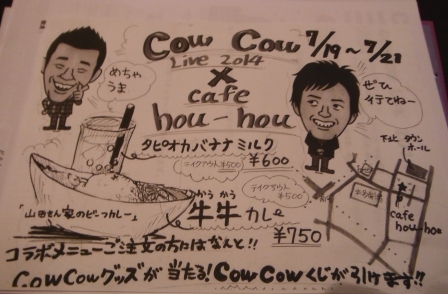 Cow Cow 7/19~7/21
Live 2014
×
cafe
hou-hou
めちゃ
うま
ぜひ
行てねー
タピオカバナナミルク
テイクアウト¥500
¥600
テイクアウト
¥500
かう かう
牛牛カレー
¥750
「山田さん家のビーフカレー」
下北 タウン
ホール
cafe
hou-hou
コラボメニューご注文の方にはなんと!!
CowCowグッズが当たる!CowCowくじが引けます!!